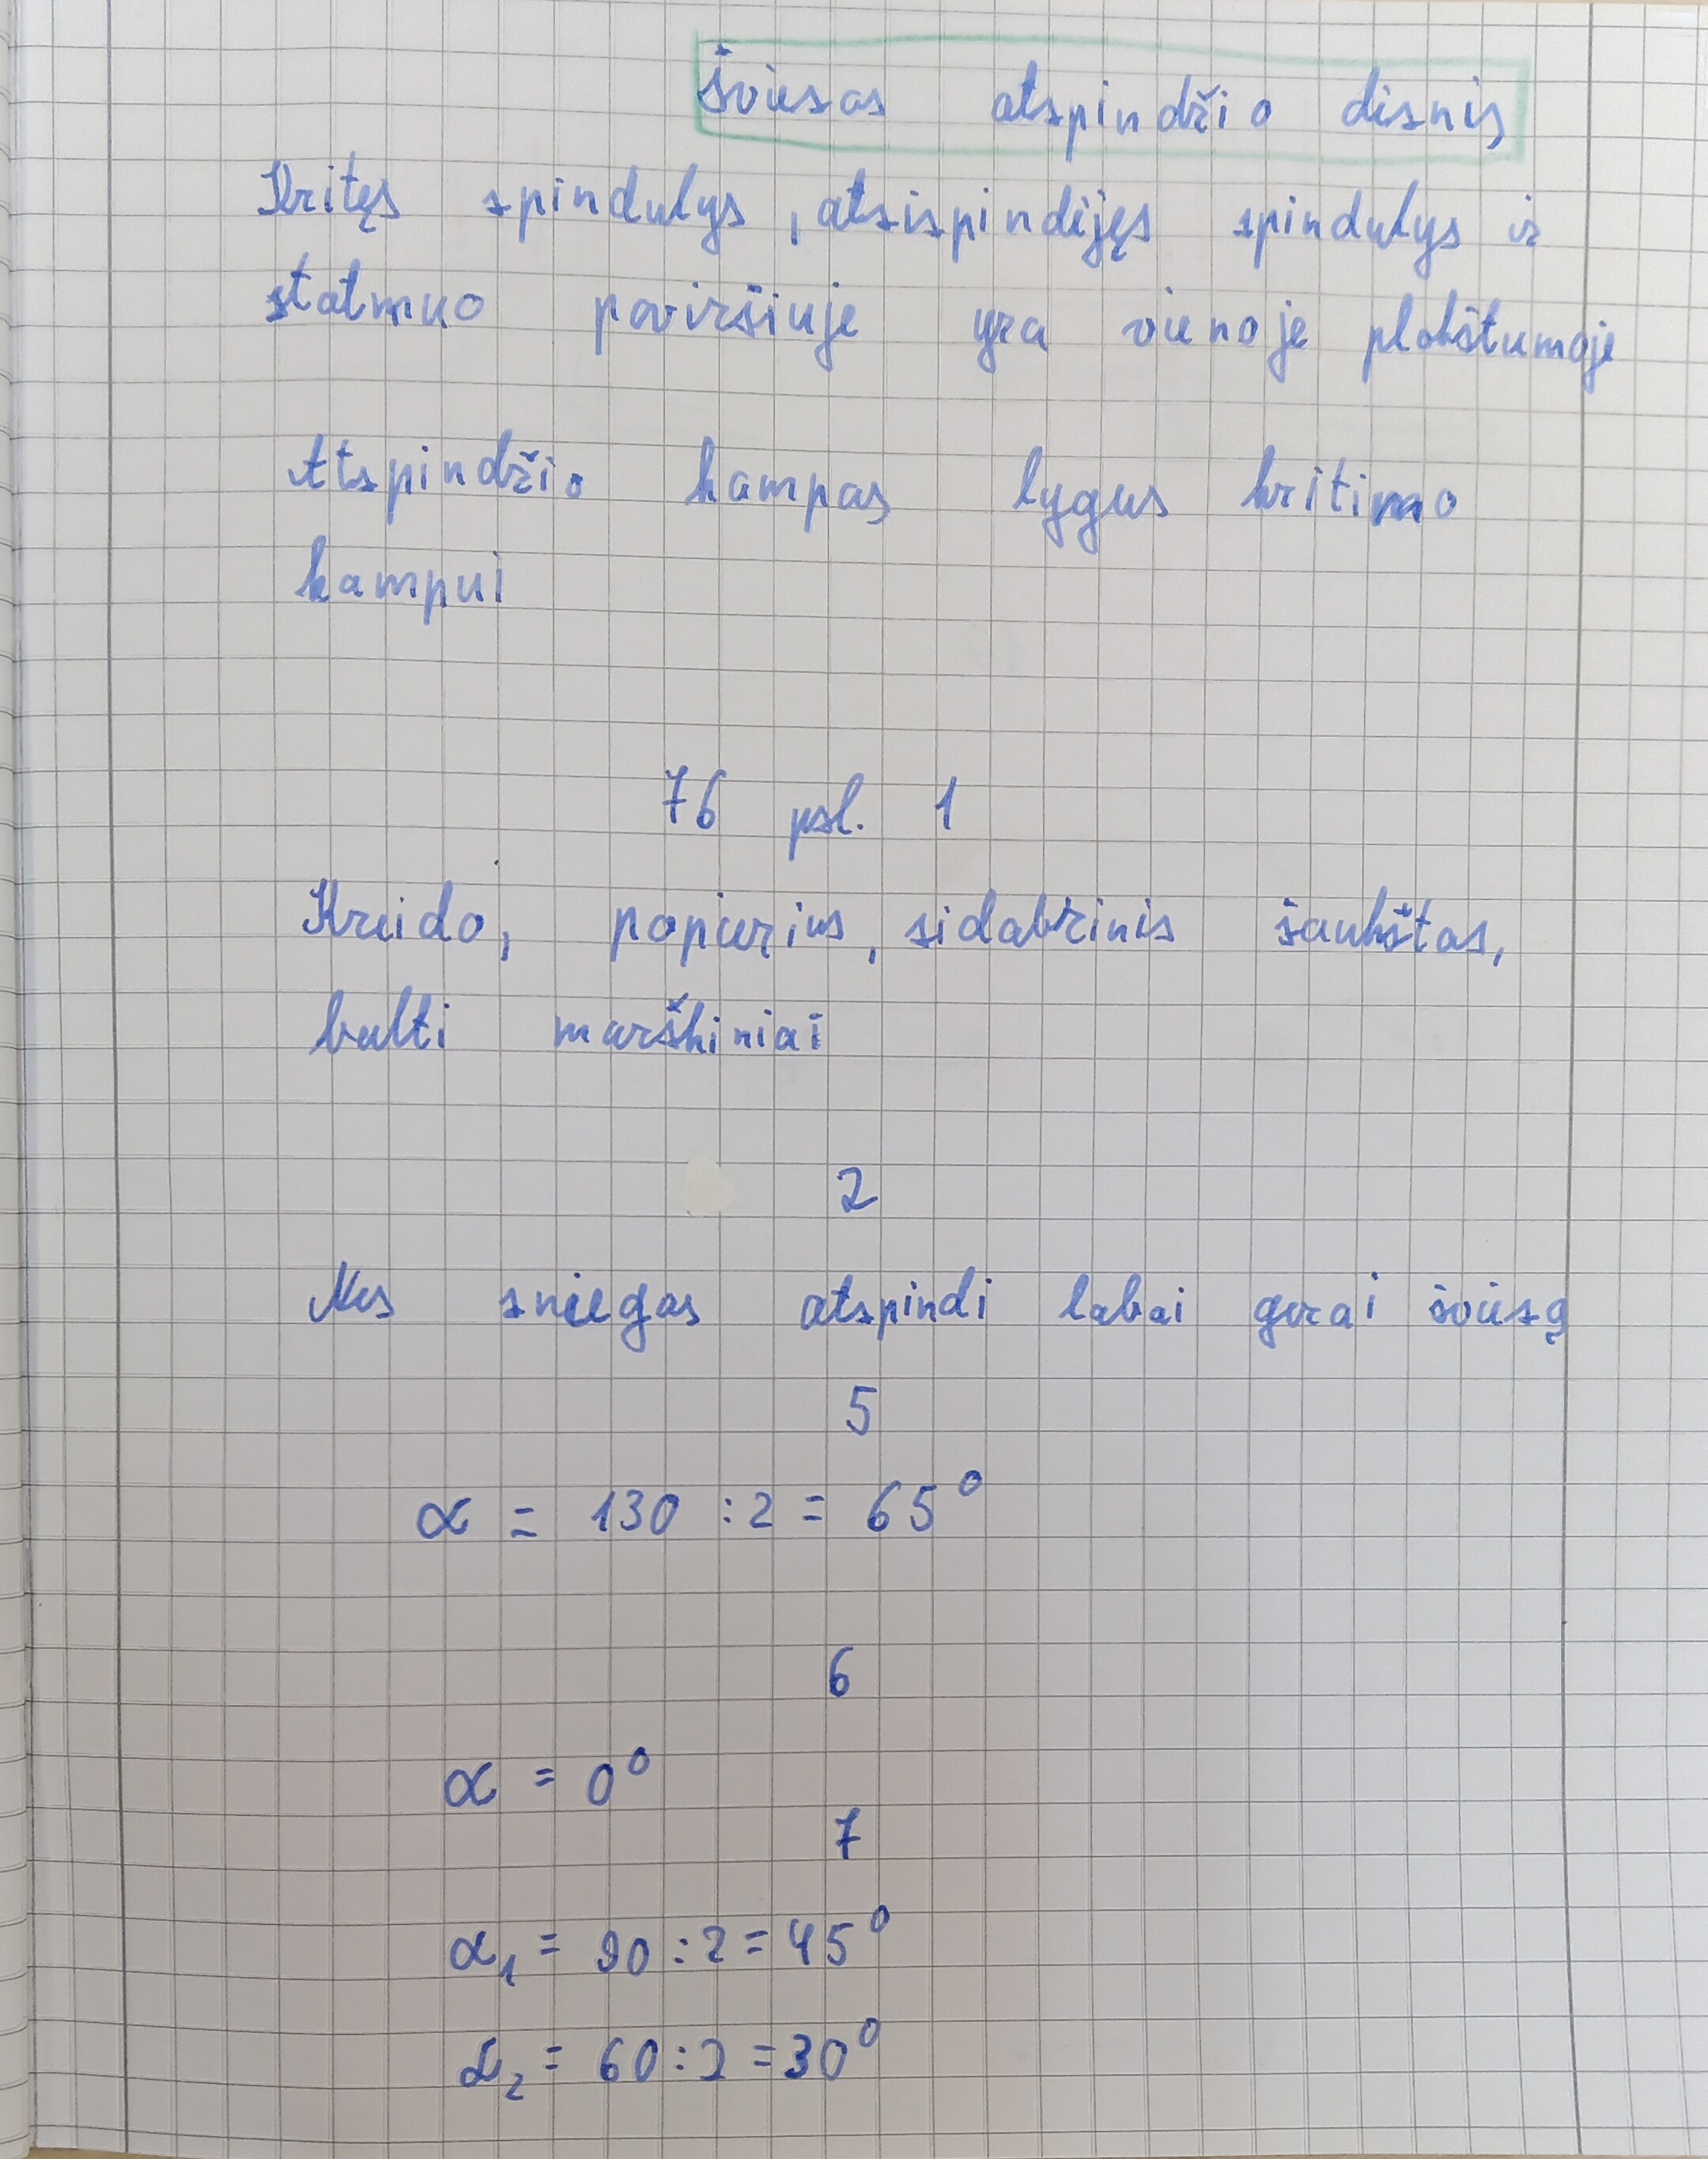 Šviesos atspindžio dėsnis
Kritęs spindulys, atsispindėjęs spindulys ir
statmuo paviršiuje yra vienoje plokštumoje
Atspindžio kampas lygus kritimo
kampui
76 psl. 1
Kreida, popierius, sidabrinis šaukštas,
balti marškiniai
2
Nes sniegas atspindi labai gerai šviesą
5
α = 130 : 2 = 65°
6
α = 0°
7
α₁ = 90 : 2 = 45°
α₂ = 60 : 2 = 30°